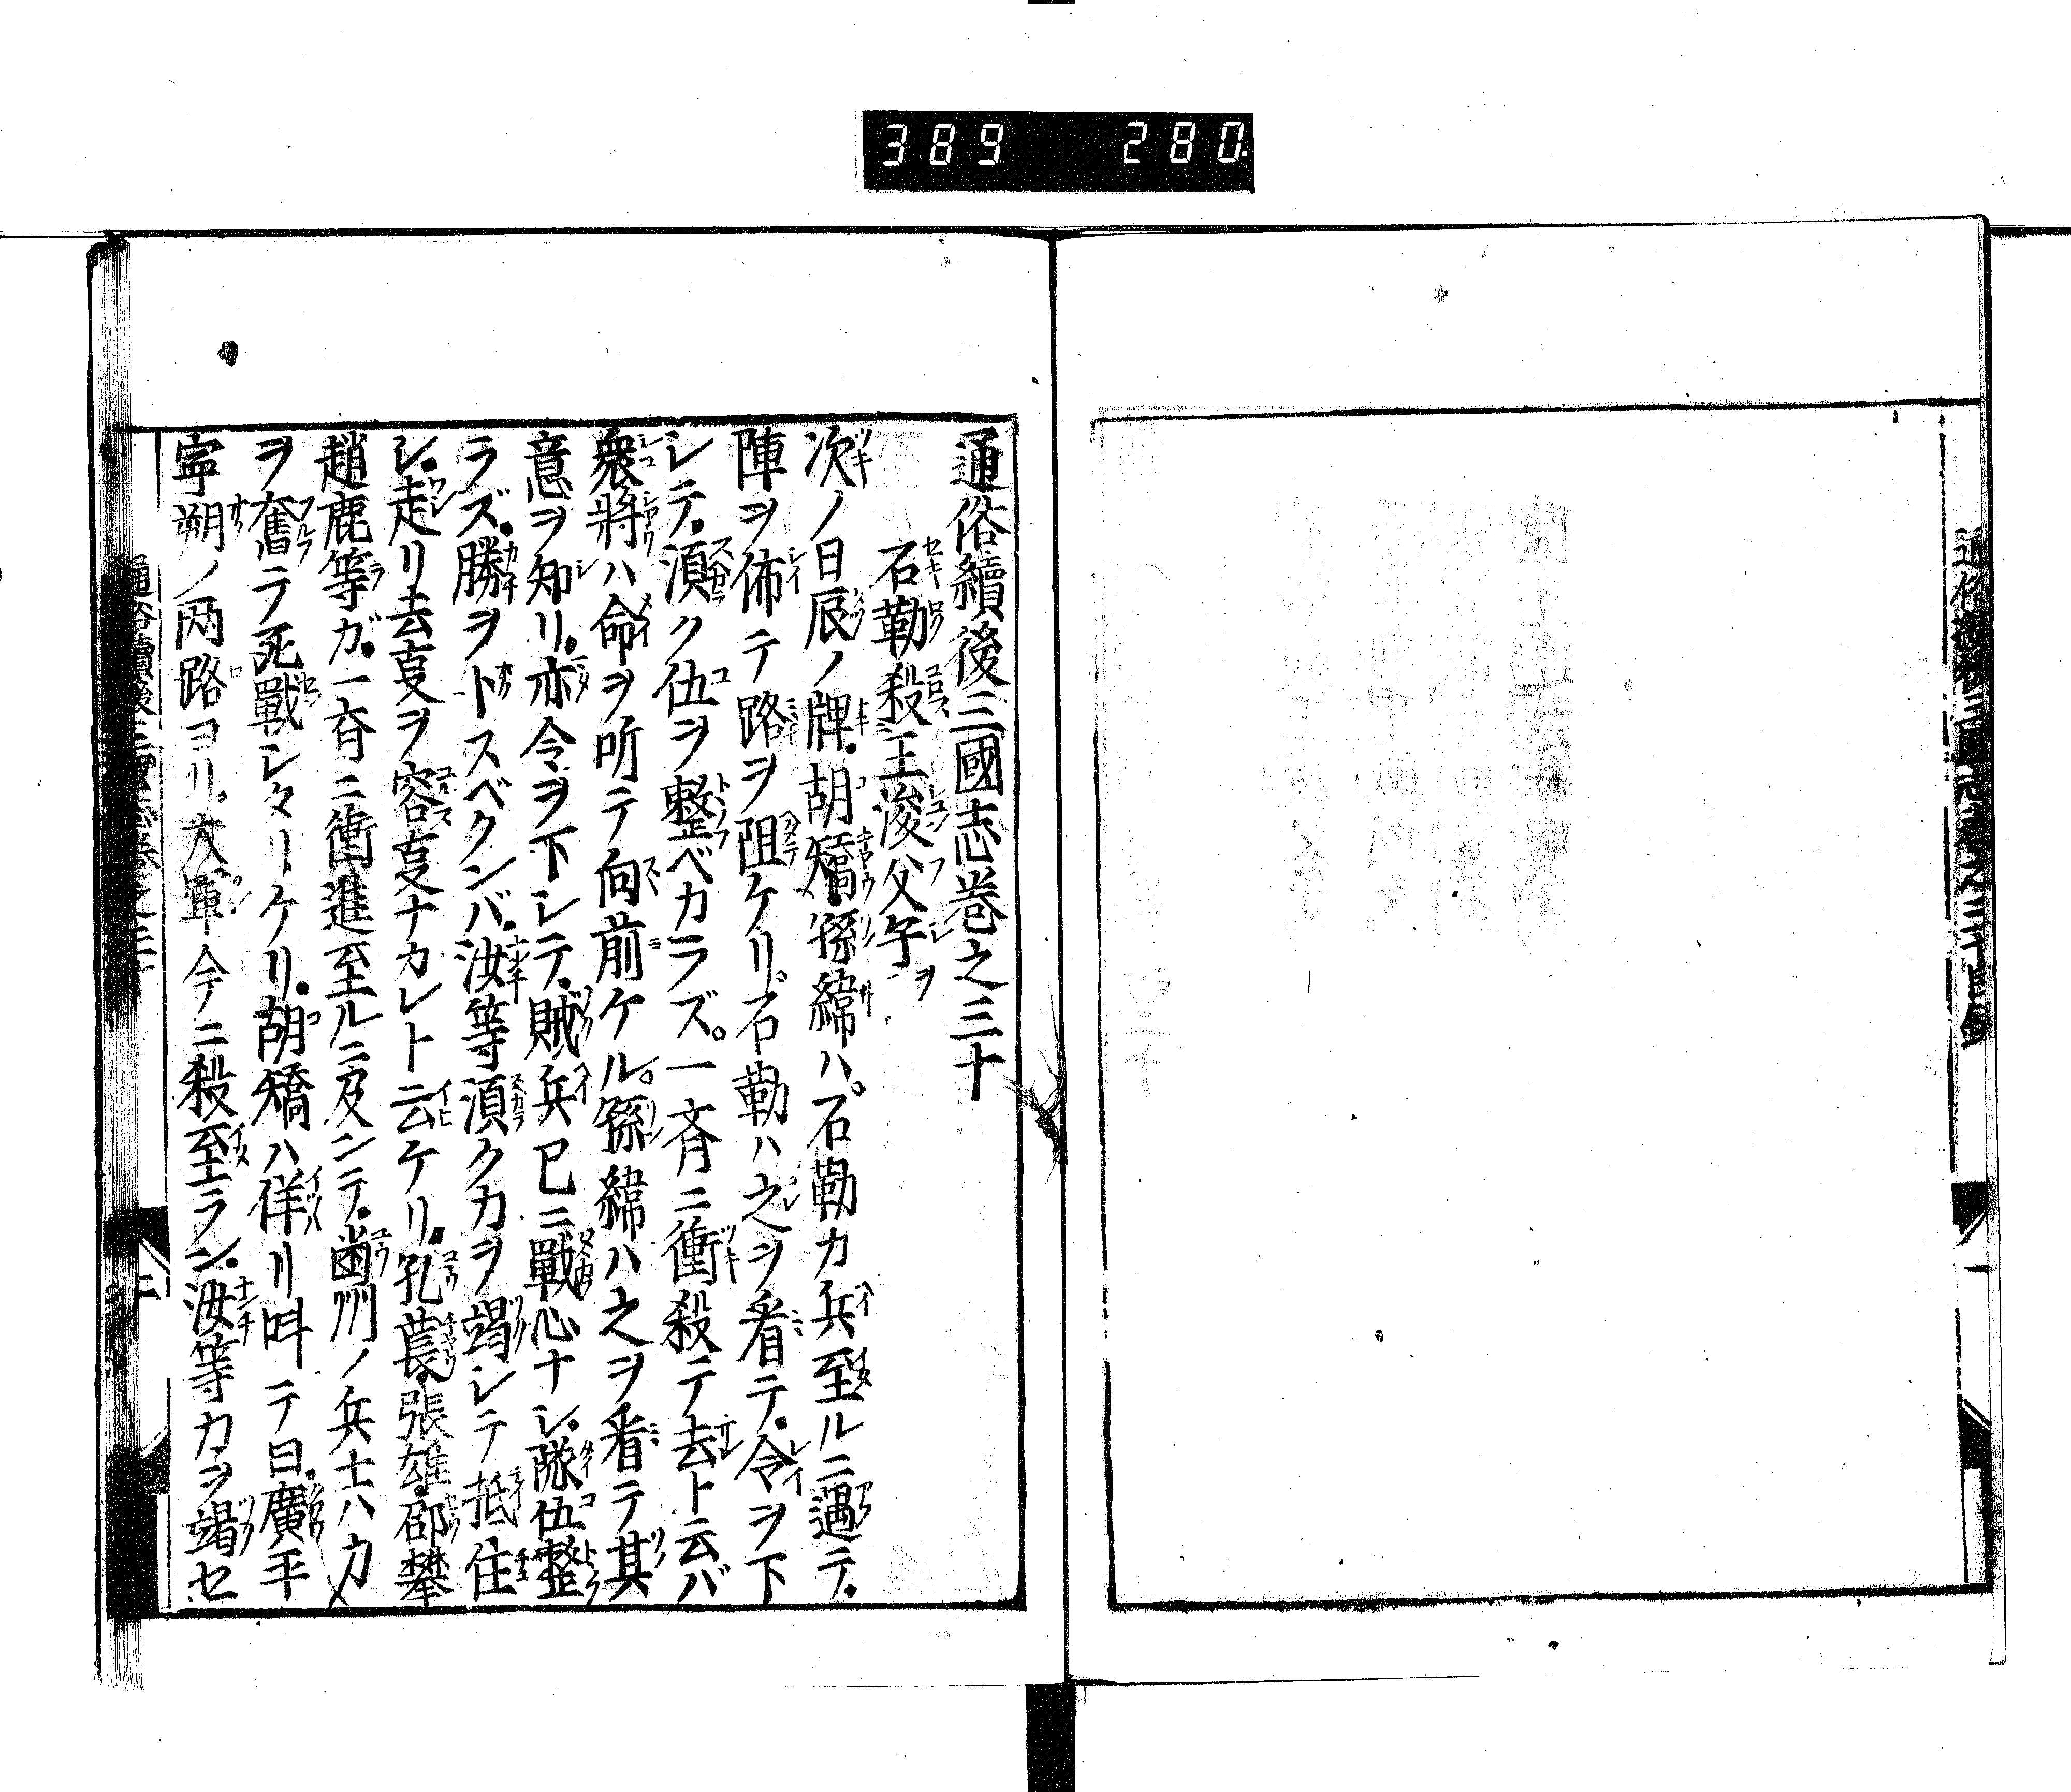 389 280
通俗續後三國志巻之三十
石勒殺王浚父子ヲ
次ノ日辰ノ牌.胡矯.孫緯ハ。石勒カ兵至ルニ遇テ.
陣ヲ佈テ路ヲ阻ケリ。石勒ハ之ヲ看テ.令ヲ下
シテ.須ク伍ヲ整ベカラズ。一齊ニ衝殺テ去ト云バ
衆將ハ命ヲ听テ向前ケル。孫緯ハ之ヲ看テ其
意ヲ知リ.亦令ヲ下シテ.賊兵已ニ戰心ナシ.隊伍整
ラズ.勝ヲトスベクンバ.汝等須ク力ヲ竭シテ抵住
シ.走リ去叓ヲ容叓ナカレト云ケリ.孔萇.張雄.郘攀
趙鹿等ガ.一齊ニ衝進至ルニ及ンテ.幽州ノ兵士ハ力
ヲ奮テ死戰シタリケリ.胡矯ハ佯リ呌テ曰.廣平
寧朔ノ两路ヨリ.大軍今ニ殺至ラン.汝等力ヲ竭セ